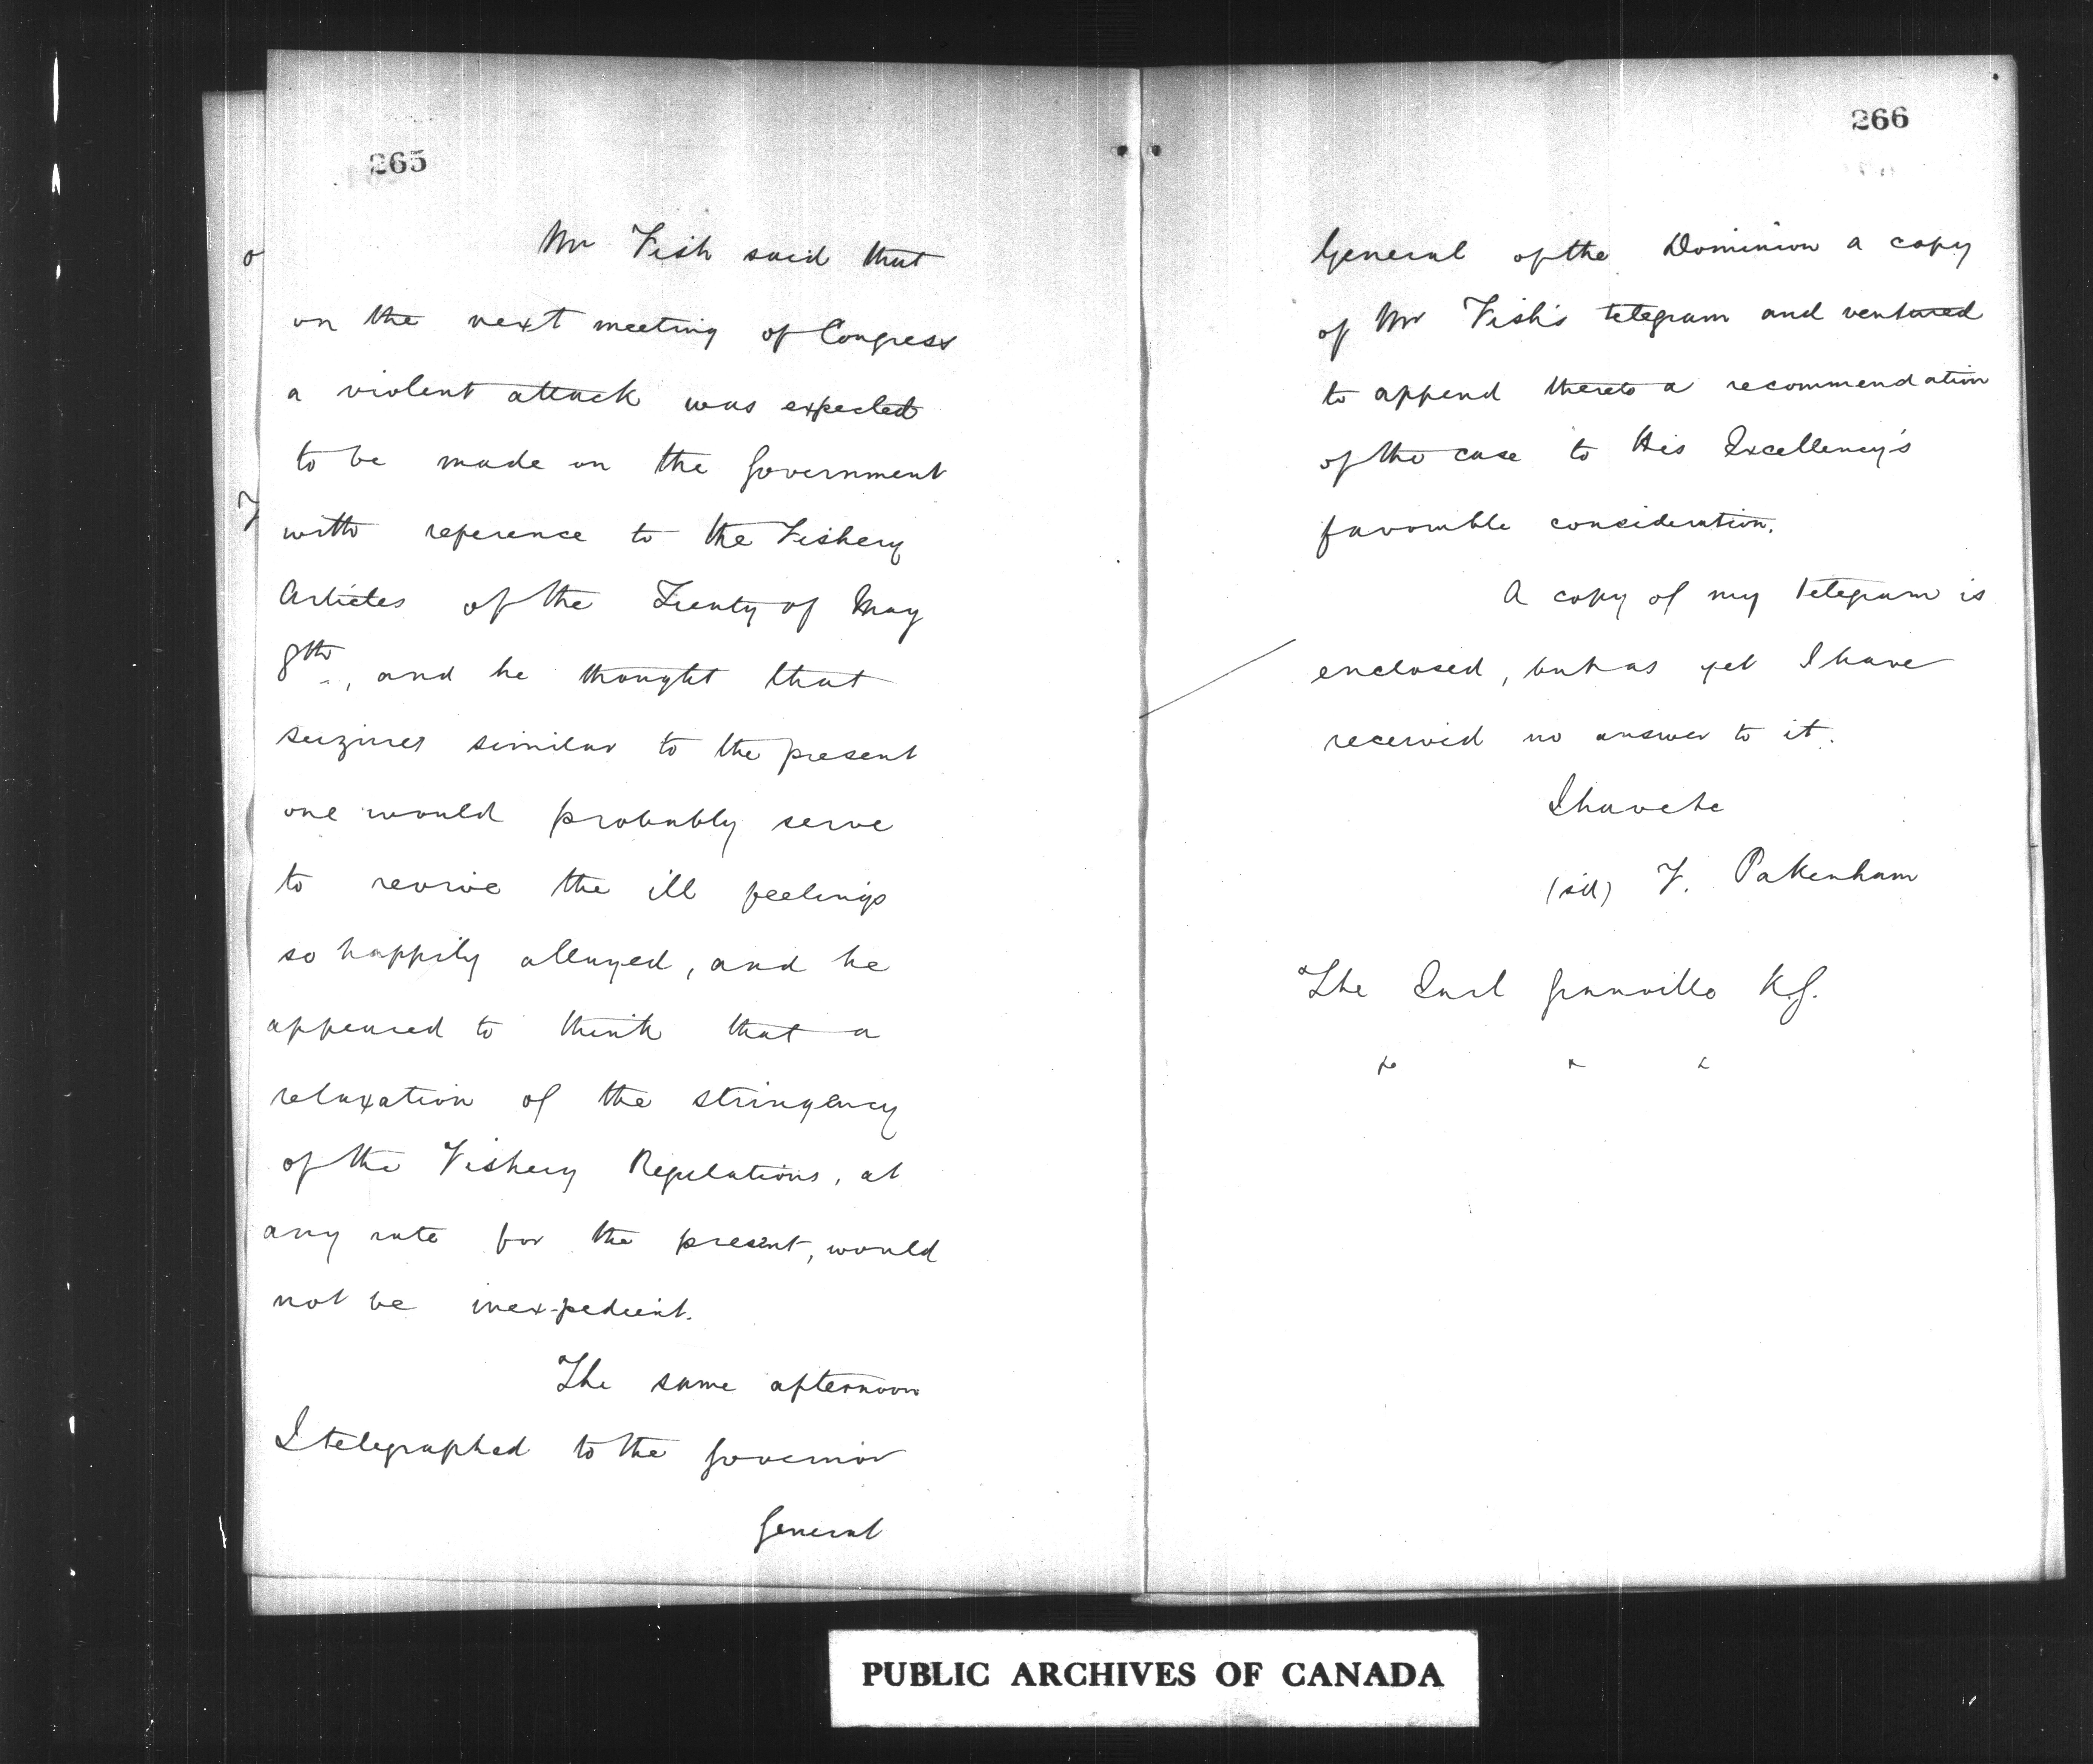 265
Mr Fish said that
on the next meeting of Congress
a violent attack was expected
to be made on the Government
with reference to the Fishery
Articles of the Treaty of May
8th, and he thought that
seizures similar to the present
one would probably serve
to revive the ill feelings
so happily allayed, and he
appeared to think that a
relaxation of the stringency
of the Fishery Regulations, at
any rate for the present, would
not be inexpedient.
The same afternoon
I telegraphed to the Governor
General
266
General of the Dominion a copy
of Mr Fish's telegram and ventured
to append thereto a recommendation
of the case to His Excellency's
favorable consideration.
A copy of my telegram is
enclosed, but as yet I have
received no answer to it.
I have &c
(sd) F. Pakenham
The Earl Granville K.G.
PUBLIC ARCHIVES OF CANADA